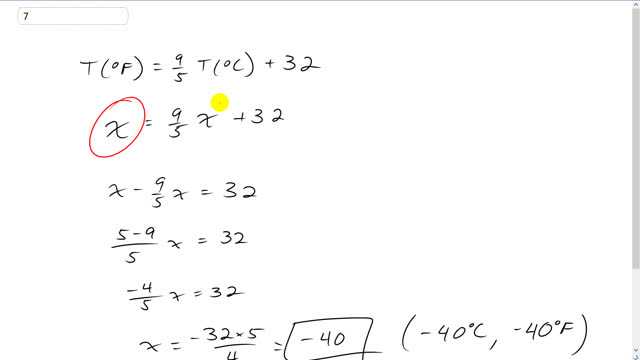 7
T(°F) = 9/5 T(°C) + 32
x = 9/5 x + 32
x - 9/5 x = 32
5-9/5 x = 32
-4/5 x = 32
x = -32×5/4 = -40 (-40°C, -40°F)